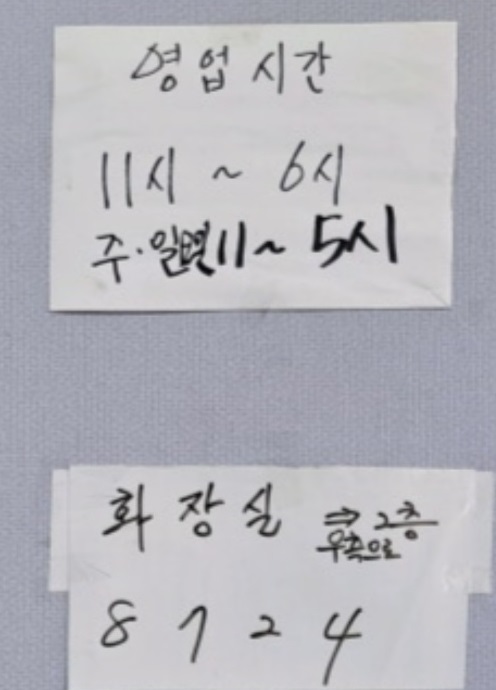 영업시간
11시 ~ 6시
주·일 11 ~ 5시
화장실 ⇒ 2층
우측으로
8 7 2 4